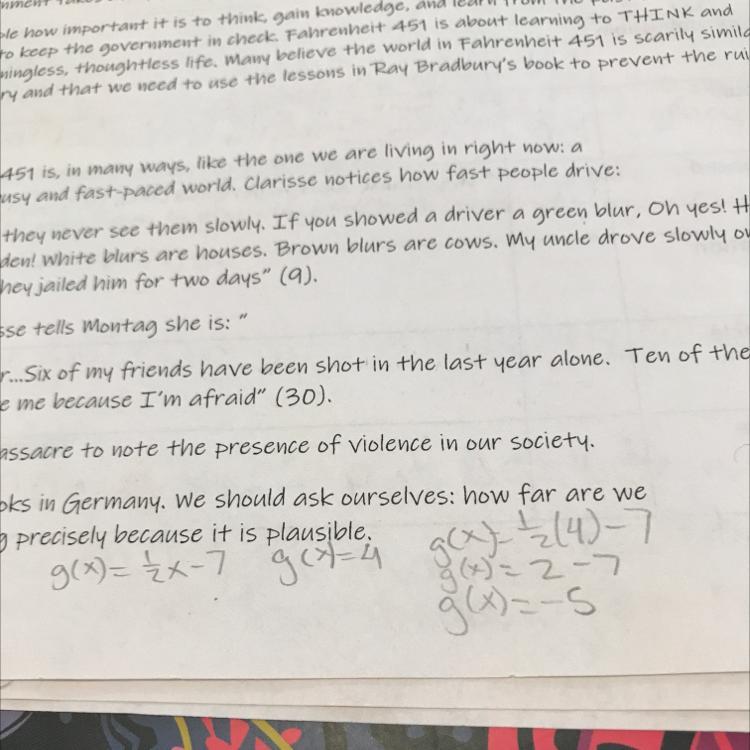 ple how important it is to think, gain knowledge, and learn from the
to keep the government in check. Fahrenheit 451 is about learning to THINK and
ningless, thoughtless life. Many believe the world in Fahrenheit 451 is scarily simila
ry and that we need to use the lessons in Ray Bradbury's book to prevent the rui
451 is, in many ways, like the one we are living in right now: a
usy and fast-paced world. Clarisse notices how fast people drive:
they never see them slowly. If you showed a driver a green blur, Oh yes! H
den! White blurs are houses. Brown blurs are cows. My uncle drove slowly o
hey jailed him for two days" (9).
sse tells Montag she is: "
r...Six of my friends have been shot in the last year alone. Ten of the
e me because I'm afraid" (30).
assacre to note the presence of violence in our society.
oks in Germany. We should ask ourselves: how far are we
g precisely because it is plausible.
g(x) = 1/2 x - 7 g(x) = 4 g(x) = 1/2 (4) - 7
g(x) = 2 - 7
g(x) = -5